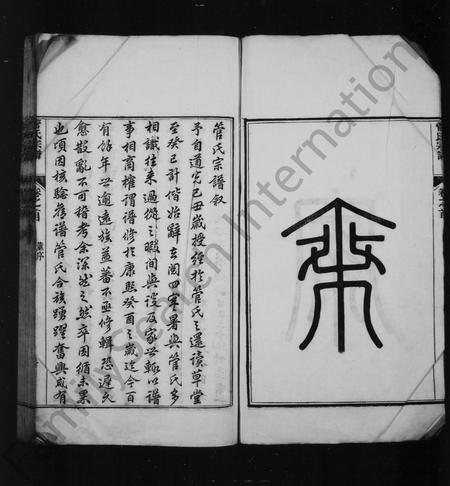 乘
管氏宗譜叙
予自道光己丑歲授經於管氏之還讀草堂
至癸巳計偕始辭去閱四寒暑與管氏多
相識往來過從之暇間與談及家世輒以譜
事相商榷謂譜修於康熙癸酉之歲迄今百
有餘年世逾遠族益蕃不亟修輯恐遲久
愈散亂不可稽考余深然之然卒因循未果
也頃因核驗舊譜管氏合族踴躍奮興咸有
管氏宗譜
卷之首
管氏宗譜
卷之首
FamilySearch International